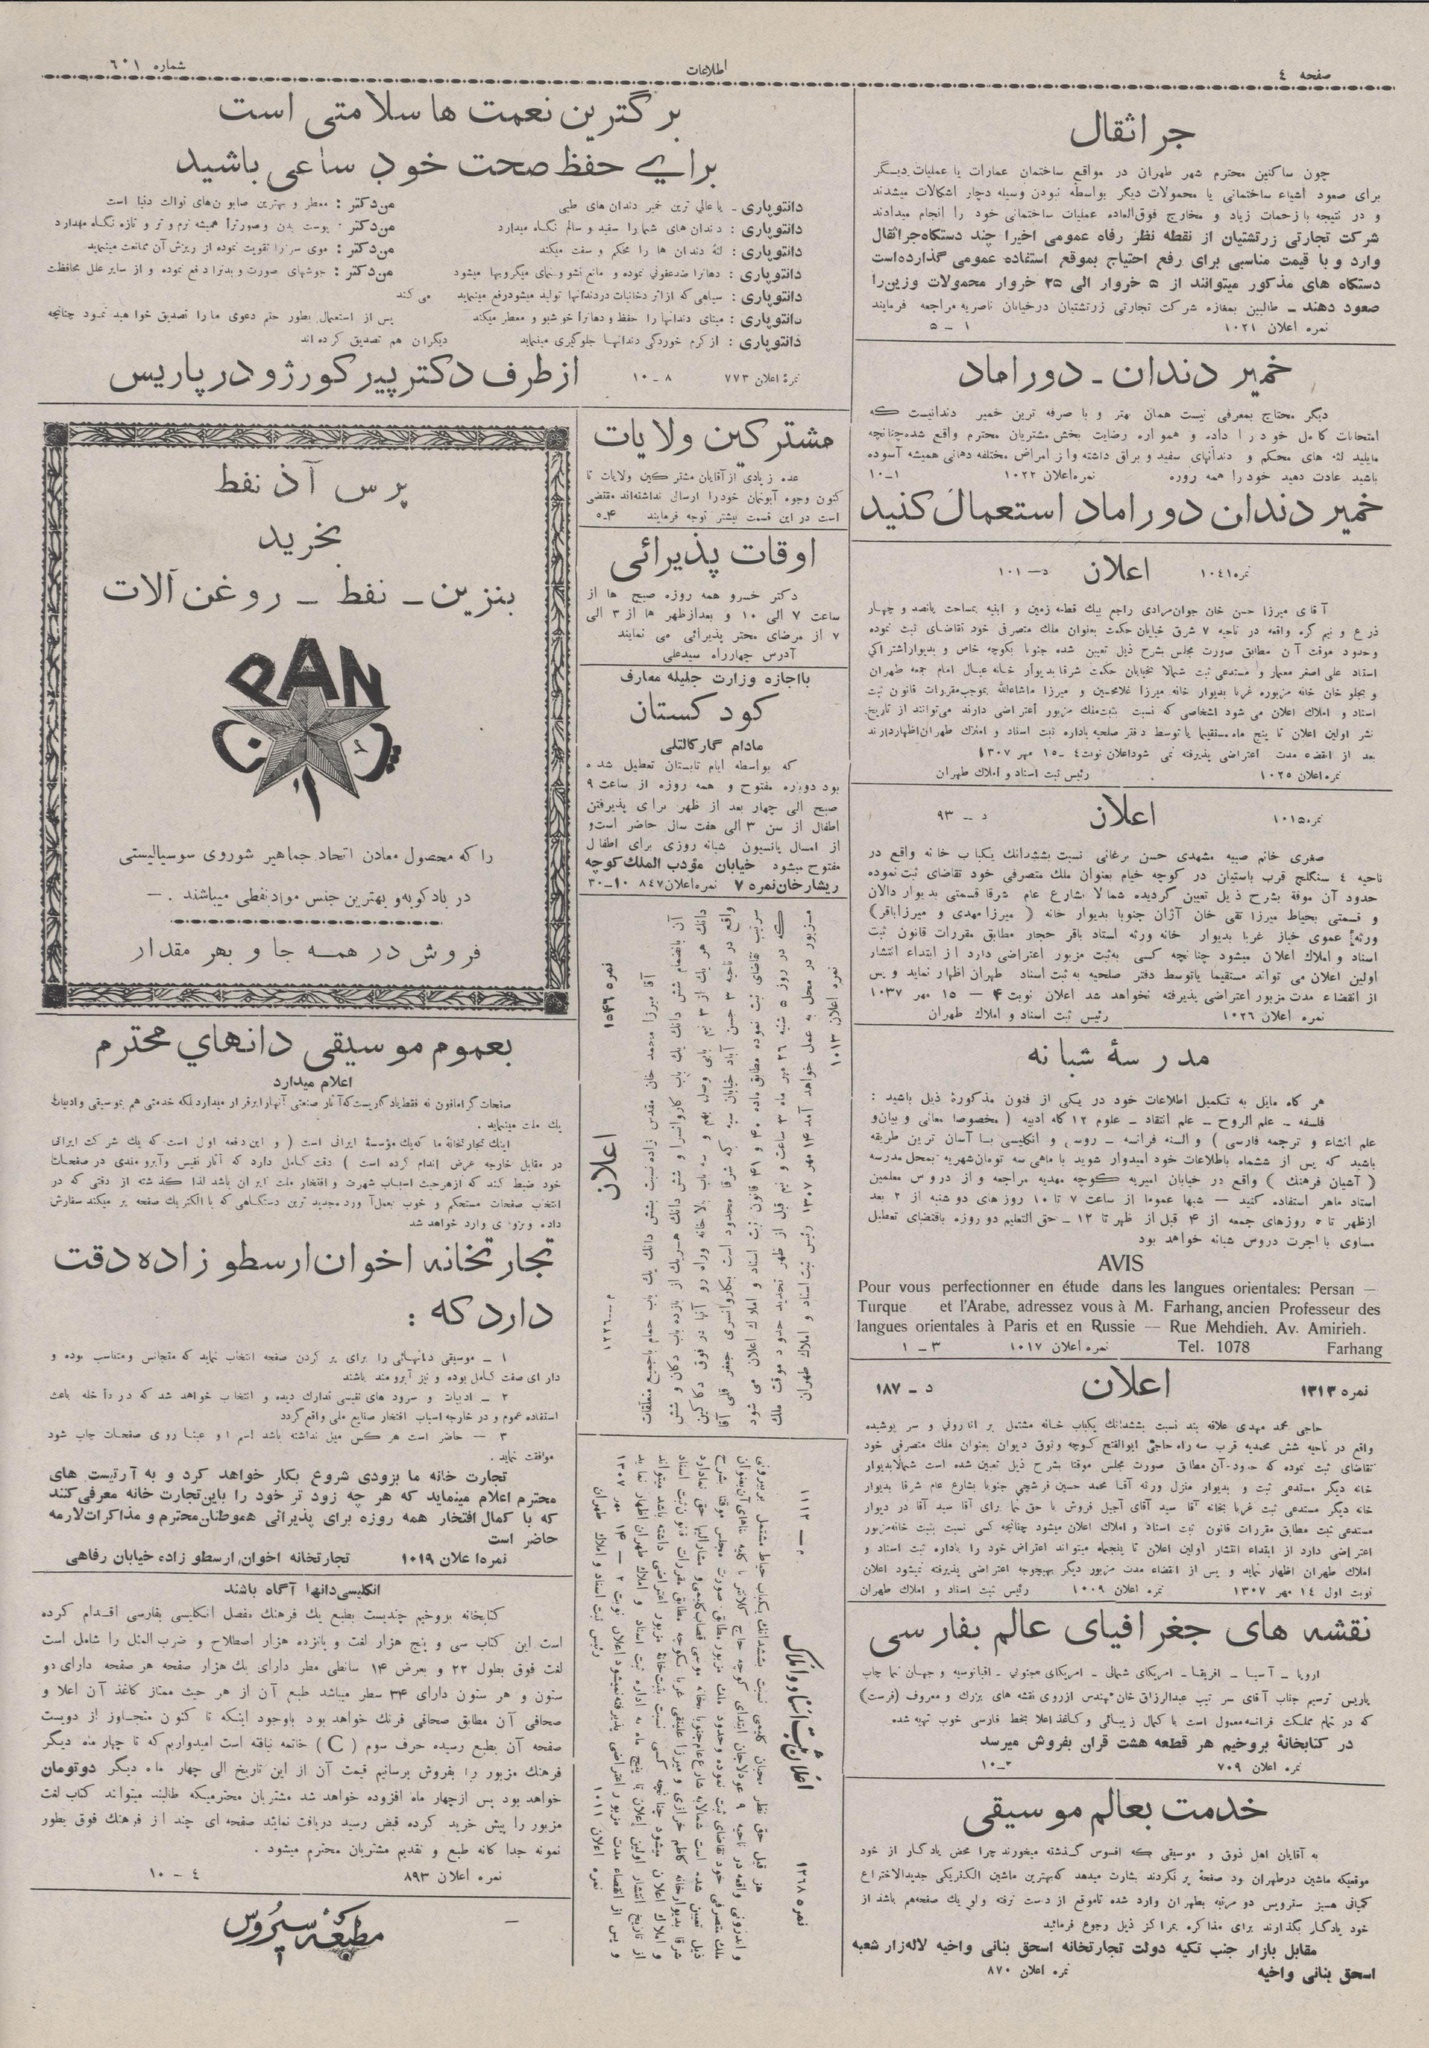 صفحه ٤
اطلاعات
شماره ٦٠١
جر اثقال
چون ساکنین محترم شهر طهران در مواقع ساختمان عمارات یا عملیات دیگر
برای صعود اشیاء ساختمانی یا محمولات دیگر بواسطه نبودن وسیله دچار اشکالات میشدند
و در نتیجه با زحمات زیاد و مخارج فوق‌العاده عملیات ساختمانی خود را انجام میدادند
شرکت تجارتی زرتشتیان از نقطه نظر رفاه عمومی اخیرا چند دستگاه جراثقال
وارد و با قیمت مناسبی برای رفع احتیاج بموقع استفاده عمومی گذارده است
دستگاه های مذکور میتوانند از ٥ خروار الی ٢٥ خروار محمولات وزین را
صعود دهند ـ طالبین بمغازه شرکت تجارتی زرتشتیان درخیابان ناصریه مراجعه فرمایند
نمره اعلان ١٠٢١ ١ - ٥
خمیر دندان ـ دور اماد
دیگر محتاج بمعرفی نیست همان بهتر و با صرفه ترین خمیر دندانیست که
امتحانات کامل خود را داده و همواره رضایت بخش مشتریان محترم واقع شده چنانچه
مایلید لثه های محکم و دندانهای سفید و براق داشته و از امراض مختلفه دهانی همیشه آسوده
باشید عادت دهید خود را همه روزه نمره اعلان ١٠٢٢ ١-١٠
خمیر دندان دور اماد استعمال کنید
نمره ١٠٤١ اعلان د — ١٠١
آقای میرزا حسن خان جوان مرادی راجع بیك قطعه زمین و ابنیه بمساحت پانصد و چهار
ذرع و نیم کره واقعه در ناحیه ٧ شرق خیابان حکمت بعنوان ملك متصرفی خود تقاضای ثبت نموده
وحدود موقت آن مطابق صورت مجلس بشرح ذیل تعیین شده جنوبا بکوچه خاص و بدیوار اشتراکی
استاد علی اصغر معمار و مستدعی ثبت شمالا بخیابان حکمت شرقا بدیوار خانه عیال امام جمعه طهران
و بجلو خان خانه مزبوره غربا بدیوار خانه میرزا غلامحسین و میرزا ماشاءالله بموجب مقررات قانون ثبت
اسناد و املاك اعلان می شود اشخاصی که نسبت بثبت ملك مزبور اعتراضی دارند می‌توانند از تاریخ
نشر اولین اعلان تا پنج ماه مستقیما یا توسط دفتر صلحیه باداره ثبت اسناد و املاك طهران اظهار دارند
بعد از انقضاء مدت اعتراضی پذیرفته نمی شود اعلان نوبت ٤ - ١٥ مهر ١٣٠٧
نمره اعلان ١٠٢٥ رئیس ثبت اسناد و املاك طهران
نمره ١٠١٥ اعلان د — ٩٣
صغری خانم صبیه مشهدی حسن برغانی نسبت بششدانك یکباب خانه واقع در
ناحیه ٤ سنگلج قرب باستیان در کوچه خیام بعنوان ملك متصرفی خود تقاضای ثبت نموده
حدود آن موقة بشرح ذیل تعیین گردیده شمالا بشارع عام شرقا قسمتی بدیوار دالان
و قسمتی بحیاط میرزا تقی خان آژان جنوبا بدیوار خانه ( میرزا مهدی و میرزا باقر )
ورثه عموی خباز غربا بدیوار خانه ورثه استاد باقر حجار مطابق مقررات قانون ثبت
اسناد و املاك اعلان میشود چنانچه کسی به ثبت مزبور اعتراضی دارد از ابتداء انتشار
اولین اعلان می تواند مستقیما یا توسط دفتر صلحیه به ثبت اسناد طهران اظهار نماید و پس
از انقضاء مدت مزبور اعتراضی پذیرفته نخواهد شد اعلان نوبت ۴ — ١٥ مهر ١٠٣٧
نمره اعلان ١٠٢٦ رئیس ثبت اسناد و املاك طهران
مدرسهٔ شبانه
هر گاه مایل به تکمیل اطلاعات خود در یکی از فنون مذکورهٔ ذیل باشید :
فلسفه ـ علم الروح ـ علم انتقاد ـ علوم ١٢ گاه ادبیه ( مخصوصا معانی و بیان و
علم انشاء و ترجمه فارسی ) و السنه فرانسه ـ روس و انگلیسی با آسان ترین طریقه
باشید که پس از ششماه باطلاعات خود امیدوار شوید با ماهی سه تومان شهریه بمحل مدرسه
( آشیان فرهنك ) واقع در خیابان امیریه کوچه مهدیه مراجعه و از دروس معلمین
استاد ماهر استفاده کنید — شبها عموما از ساعت ٧ تا ١٠ روز های دو شنبه از ٢ بعد
ازظهر تا ٥ روزهای جمعه از ۴ قبل از ظهر تا ١٢ ـ حق التعلیم دو روزه باقتضای تعطیل
مساوی با اجرت دروس شبانه خواهد بود
AVIS
Pour vous perfectionner en étude dans les langues orientales: Persan —
Turque et l'Arabe, adressez vous à M. Farhang, ancien Professeur des
langues orientales à Paris et en Russie — Rue Mehdieh. Av. Amirieh.
Tel. 1078 Farhang
نمره اعلان ١٠١٧ ٣ — ١
نمره ١٣١٣ اعلان د - ١٨٧
حاجی محمد مهدی علاقه بند نسبت بششدانك یکباب خانه مشتمل بر اندرونی و سر پوشیده
واقع در ناحیه شش محمدیه قرب سه راه حاجی ابوالفتح کوچه وثوق دیوان بعنوان ملك متصرفی خود
تقاضای ثبت نموده که حدود آن مطابق صورت مجلس موقتا بشرح ذیل تعیین شده است شمالا بدیوار
خانه دیگر مستدعی ثبت و بدیوار منزل ورثه آقا محمد حسین فرشچی جنوبا بشارع عام شرقا بدیوار
خانه دیگر مستدعی ثبت غربا بخانه آقا سید آقای آجیل فروش با حق نما برای آقا سید آقا در دیوار
مستدعی ثبت مطابق مقررات قانون ثبت اسناد و املاك اعلان میشود چنانچه کسی نسبت بثبت خانه مزبور
اعتراضی دارد از ابتداء انتشار اولین اعلان تا پنجماه میتواند اعتراض خود را باداره ثبت اسناد و
املاك طهران اظهار نماید و پس از انقضاء مدت مزبور دیگر بهیچوجه اعتراضی پذیرفته نمیشود اعلان
نوبت اول ١٤ مهر ١٣٠٧ نمره اعلان ١٠٠٩ رئیس ثبت اسناد و املاك طهران
نقشه های جغرافیای عالم بفارسی
اروپا ـ آسیا ـ افریقا ـ امریکای شمالی ـ امریکای جنوبی ـ اقیانوسیه و جهان نما چاپ
پاریس ترسیم جناب آقای سر تیپ عبدالرزاق خان مهندس ازروی نقشه های بزرك و معروف (فرست)
که در تمام مملکت فرانسه معمول است با کمال زیبائی و کاغذ اعلا بخط فارسی خوب تهیه شده
در کتابخانهٔ بروخیم هر قطعه هشت قران بفروش میرسد
نمره اعلان ٧٠٩ ٣-١٠
خدمت بعالم موسیقی
به آقایان اهل ذوق و موسیقی که افسوس گذشته میخورند چرا محض یادگار از خود
موقعیکه ماشین درطهران بود صفحهٔ پر نکردند بشارت میدهد که بهترین ماشین الکتریکی جدیدالاختراع
کمپانی هیسز سفرویس دو مرتبه بطهران وارد شده تا موقع از دست نرفته ولو یك صفحه هم باشد از
خود یادگار بگذارند برای مذاکره بمراکز ذیل رجوع فرمائید
مقابل بازار جنب تکیه دولت تجارتخانه اسحق بنانی و اخیه لاله‌زار شعبه
اسحق بنانی و اخیه نمره اعلان ٨٧٠
برگترین نعمت ها سلامتی است
برای حفظ صحت خود ساعی باشید
دانتوپاری ـ یا عالی ترین خمیر دندان های طبی
دانتوپاری : دندان های شما را سفید و سالم نگاه میدارد
دانتوپاری : لثهٔ دندان ها را محکم و سفت میکند
دانتوپاری : دهانرا ضدعفونی نموده و مانع نشو و نمای میکروبها میشود
دانتوپاری : سیاهی که از اثر دخانیات در دندانها تولید میشود رفع مینماید
دانتوپاری : مینای دندانها را حفظ و دهانرا خوشبو و معطر میکند
دانتوپاری : از کرم خوردگی دندانها جلوگیری مینماید
من دکتر : معطر و بهترین صابون های توالت دنیا است
من دکتر : پوست بدن و صورترا همیشه نرم و تر و تازه نگاه میدارد
من دکتر : موی سر را تقویت نموده از ریزش آن ممانعت مینماید
من دکتر : جوشهای صورت و بدنرا دفع نموده و از سایر علل محافظت
می کند
پس از استعمال بطور حتم دعوی ما را تصدیق خواهید نمود چنانچه
دیگران هم تصدیق کرده اند
نمرهٔ اعلان ٧٧٣ ٨ - ١٠
از طرف دکتر پیر کورژو در پاریس
مشترکین ولایات
عده زیادی از آقایان مشترکین ولایات تا
کنون وجوه آبونمان خود را ارسال نداشته‌اند مقتضی
است در این قسمت بیشتر توجه فرمایند ۴-٥
اوقات پذیرائی
دکتر خسرو همه روزه صبح ها از
ساعت ٧ الی ١٠ و بعدازظهر ها از ٣ الی
٧ از مرضای محترم پذیرائی می نمایند
آدرس چهارراه سیدعلی
با اجازه وزارت جلیله معارف
کودکستان
مادام گارکالتلی
که بواسطه ایام تابستان تعطیل شده
بود دوباره مفتوح و همه روزه از ساعت ٩
صبح الی چهار بعد از ظهر برای پذیرفتن
اطفال از سن ٣ الی هفت سال حاضر است و
از امسال پانسیون شبانه روزی برای اطفال
مفتوح میشود خیابان مؤدب الملك کوچه
ریشار خان نمره ٧ نمره اعلان ٨٤٧ ١٠-٣٠
نمره ١٥٤٦ اعلان م — ٦٢٨١
نمره اعلان ١٠١٣
نمره ١٢٦٨ اعلان ثبت اسناد و املاک م — ١١١٢
نمره اعلان ١٠١١
رئیس ثبت اسناد و املاك طهران
پرس آذ نفط
بخرید
بنزین ـ نفط ـ روغن آلات
PAN
را که محصول معادن اتحاد جماهیر شوروی سوسیالیستی
در بادکوبه و بهترین جنس مواد نفطی میباشند . —
فروش در همه جا و بهر مقدار
بعموم موسیقی دانهای محترم
اعلام میدارد
صفحات گرامافون نه فقط یادگاریست که آثار صنعتی آنها را برقرار میدارد بلکه خدمتی هم بموسیقی و ادبیات
یك ملت مینماید .
اینك تجارتخانهٔ ما که یك مؤسسهٔ ایرانی است ( و این دفعه اول است که یك شرکت ایرانی
در مقابل خارجه عرض اندام کرده است ) دقت کامل دارد که آثار نفیس و آبرومندی در صفحات
خود ضبط کند که از هر حیث اسباب شهرت و افتخار ملت ایران باشد لذا گذشته از دقتی که در
انتخاب صفحات مستحکم و خوب بعمل آورد مجدید ترین دستگاهی که با الکتریك صفحه پر میکند سفارش
داده و بزودی وارد خواهد شد
تجارتخانه اخوان ارسطو زاده دقت
دارد که :
١ ـ موسیقی دانهائی را برای پر کردن صفحه انتخاب نماید که متجانس و متناسب بوده و
دارای صفت کامل بوده و نیز آبرومند باشند
٢ ـ ادبیات و سرود های نفیسی تدارك دیده و انتخاب خواهد شد که در داخله باعث
استفاده عموم و در خارجه اسباب افتخار صنایع ملی واقع گردد
٣ — حاضر است هر کس میل نداشته باشد اسم او عینا روی صفحات چاپ شود
موافقت نماید .
تجارت خانه ما بزودی شروع بکار خواهد کرد و به آرتیست های
محترم اعلام مینماید که هر چه زود تر خود را باین تجارت خانه معرفی کنند
که با کمال افتخار همه روزه برای پذیرائی هموطنان محترم و مذاکرات لازمه
حاضر است
نمره اعلان ١٠١٩ تجارتخانه اخوان ارسطو زاده خیابان رفاهی
انگلیسی دانها آگاه باشند
کتابخانه بروخیم چندیست بطبع یك فرهنك مفصل انگلیسی بفارسی اقدام کرده
است این کتاب سی و پنج هزار لغت و پانزده هزار اصطلاح و ضرب المثل را شامل است
لغت فوق بطول ٢٢ و بعرض ١۴ سانطی مطر دارای یك هزار صفحه هر صفحه دارای دو
ستون و هر ستون دارای ٣۴ سطر میباشد طبع آن از هر حیث ممتاز کاغذ آن اعلا و
صحافی آن مطابق صحافی فرنك خواهد بود باوجود اینکه تا کنون متجاوز از دویست
صفحه آن بطبع رسیده حرف سوم ( C ) خاتمه نیافته است امیدواریم که تا چهار ماه دیگر
فرهنك مزبور را بفروش برسانیم قیمت آن از این تاریخ الی چهار ماه دیگر دو تومان
خواهد بود پس از چهار ماه افزوده خواهد شد مشتریان محترمیکه طالبند میتواند کتاب لغت
مزبور را پیش خرید کرده قبض رسید دریافت نمائند صفحه ای چند از فرهنك فوق بطور
نمونه جدا گانه طبع و تقدیم مشتریان محترم میشود .
نمره اعلان ٨٩٣ ٤ - ١٠
مطبعهٔ سیروس